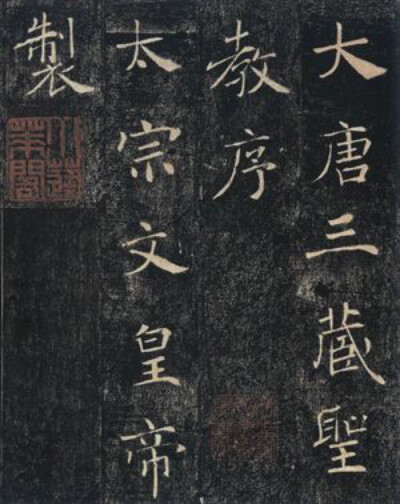 大唐三蔵聖
教序
太宗文皇帝
製